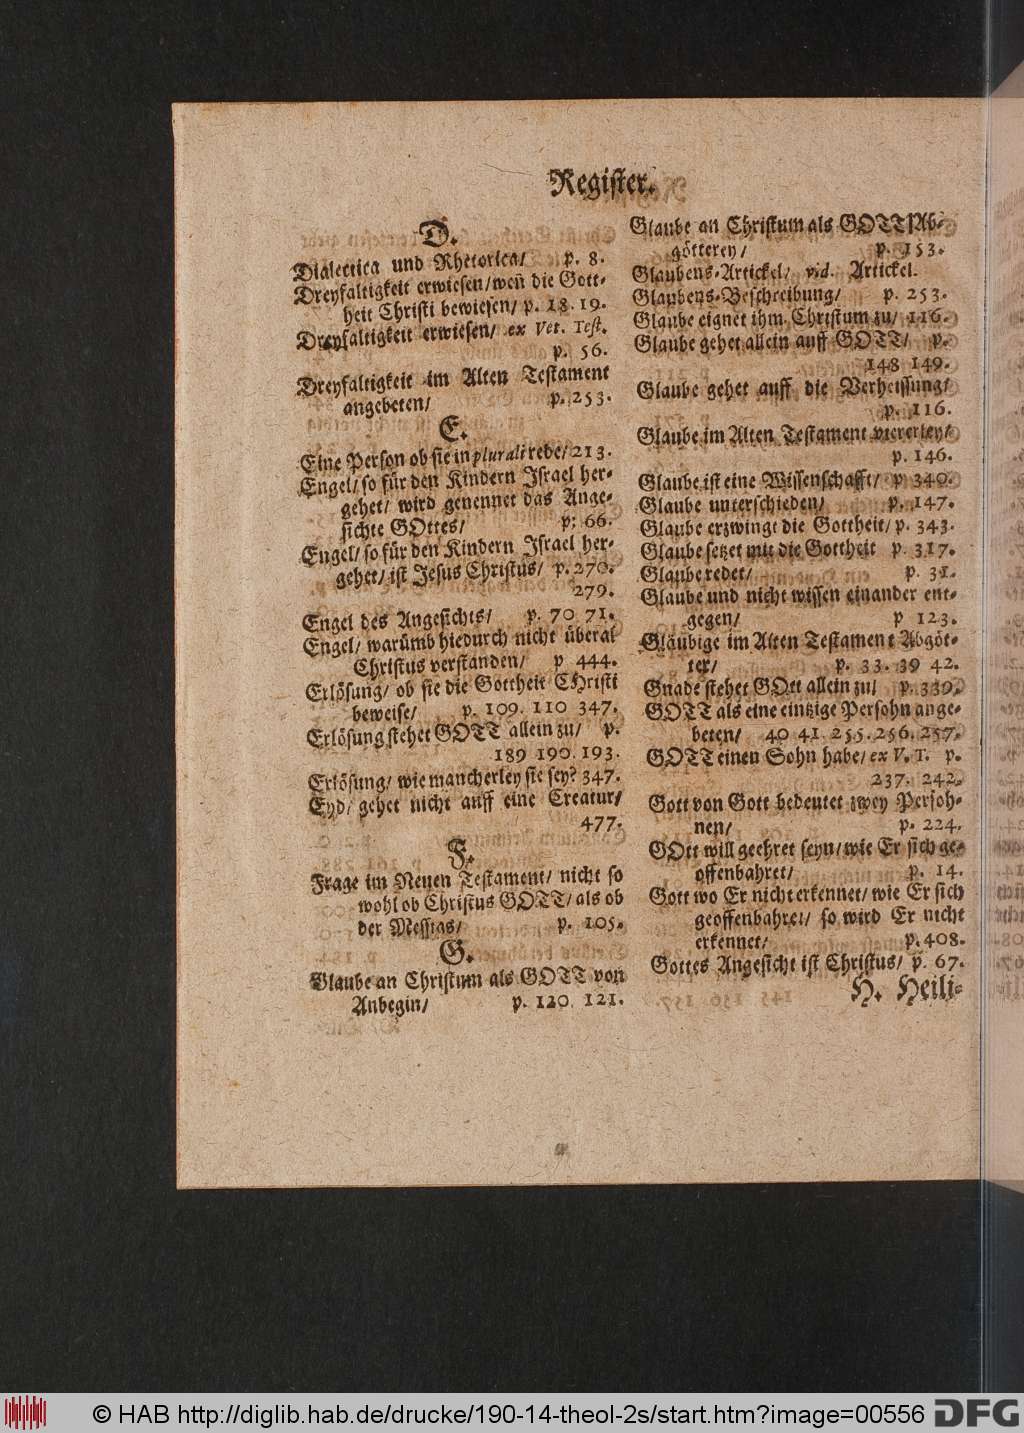 Register.
D.
Dialectica und Rhetorica/ p. 8.
Dreyfaltigkeit erwiesen/weñ die Gott-
heit Christi bewiesen/ p. 18. 19.
Dreyfaltigkeit erwiesen/ ex Vet. Test.
p. 56.
Dreyfaltigkeit im Alten Testament
angebeten/ p. 253.
E.
Eine Person ob sie in plurali rede/ 213.
Engel/ so für den Kindern Israel her-
gehet/ wird genennet das Ange-
sichte GOttes/ p. 66.
Engel/ so für den Kindern Israel her-
gehet/ ist Jesus Christus/ p. 270.
279.
Engel des Angesichts/ p. 70 71.
Engel/ warümb hiedurch nicht überal
Christus verstanden/ p 444.
Erlösung/ ob sie die Gottheit CHristi
beweise/ p. 109. 110 347.
Erlösung stehet GOTT allein zu/ p.
189 190. 193.
Erlösung/ wie mancherley sie sey? 347.
Eyd/ gehet nicht auff eine Creatur/
477.
F.
Frage im Neuen Testament/ nicht so
wohl ob Christus GOTT/ als ob
der Messias/ p. 105.
G.
Glaube an Christum als GOTT von
Anbegin/ p. 120. 121.
Glaube an Christum als GOTT/Ab-
götterey/ p. 153.
Glaubens-Artickel/ vid. Artickel.
Glaubens-Beschreibung/ p. 253.
Glaube eignet ihm Christum zu/ 116.
Glaube gehet allein auff GOTT/ p.
148 149.
Glaube gehet auff die Verheissung/
p. 116.
Glaube im Alten Testament viererley/
p. 146.
Glaube ist eine Wissenschafft/ p 340.
Glaube unterschieden/ p. 147.
Glaube erzwingt die Gottheit/ p. 343.
Glaube setzet mit die Gottheit p. 317.
Glaube redet/ p. 31.
Glaube und nicht wissen einander ent-
gegen/ p 123.
Gläubige im Alten Testament Abgöt-
ter/ p. 33. 39 42.
Gnade stehet GOtt allein zu/ p. 339.
GOTT als eine eintzige Persohn ange-
beten/ 40 41. 255. 256. 257.
GOTT einen Sohn habe/ ex V. T. p.
237. 242.
Gott von Gott bedeutet zwey Persoh-
nen/ p. 224.
GOtt will geehret seyn/ wie Er sich ge-
offenbahret/ p. 14.
Gott wo Er nicht erkennet/ wie Er sich
geoffenbahret/ so wird Er nicht
erkennet/ p. 408.
Gottes Angesicht ist Christus/ p. 67.
H. Heili-
© HAB http://diglib.hab.de/drucke/190-14-theol-2s/start.htm?image=00556
DFG